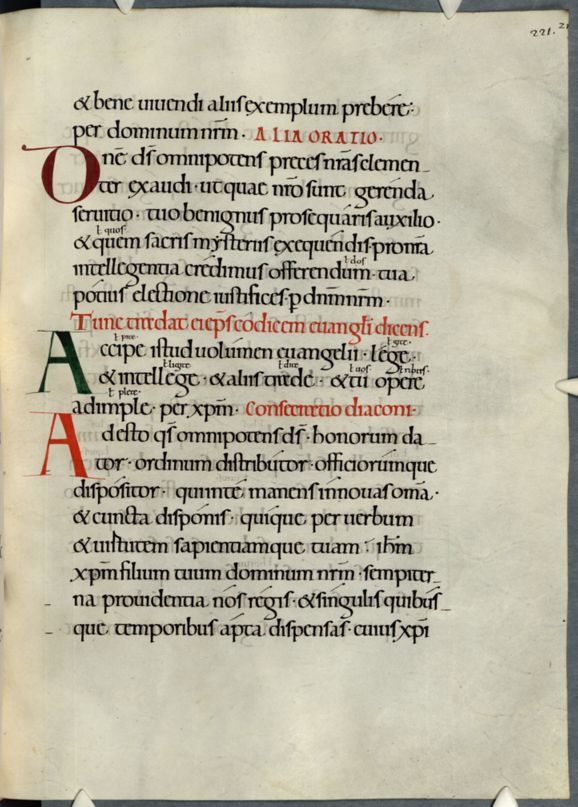 221.
& bene uiuendi aliis exemplum prebere;
per dominum nr̄m · ALIA ORATIO ·
Dn̄e d̄s omnipotens preces nr̄as clemen
ter exaudi · ut quae nr̄o sunt gerenda
seruitio · tuo benignus prosequaris auxilio ·
ł quos
& quem sacris mysteriis exequendis pro nr̄a
ł dos
intellegentia credimus offerendum · tua
potius electione iustifices · p dn̄m nr̄m ·
Tunc tradat ei ep̄s codicem euangl̄i dicens.
ł pite ł gite
Accipe istud uolumen euangelii · lege ·
ł ligite ł dite ł uos ł ribus
& intellege · & aliis trade · & tu opere
ł plete
adimple · per xp̄m · Consecratio diaconi ·
Adesto qs̄ omnipotens d̄s · honorum da
tor · ordinum distributor · officiorumque
dispositor · qui in te manens innouas om̄a ·
& cuncta disponis · quique per uerbum
& uirtutem sapientiamque tuam · ih̄m
xp̄m filium tuum dominum nr̄m · sempiter
na prouidentia nos regis · & singulis quibus
que temporibus apta dispensas · cuius xp̄i